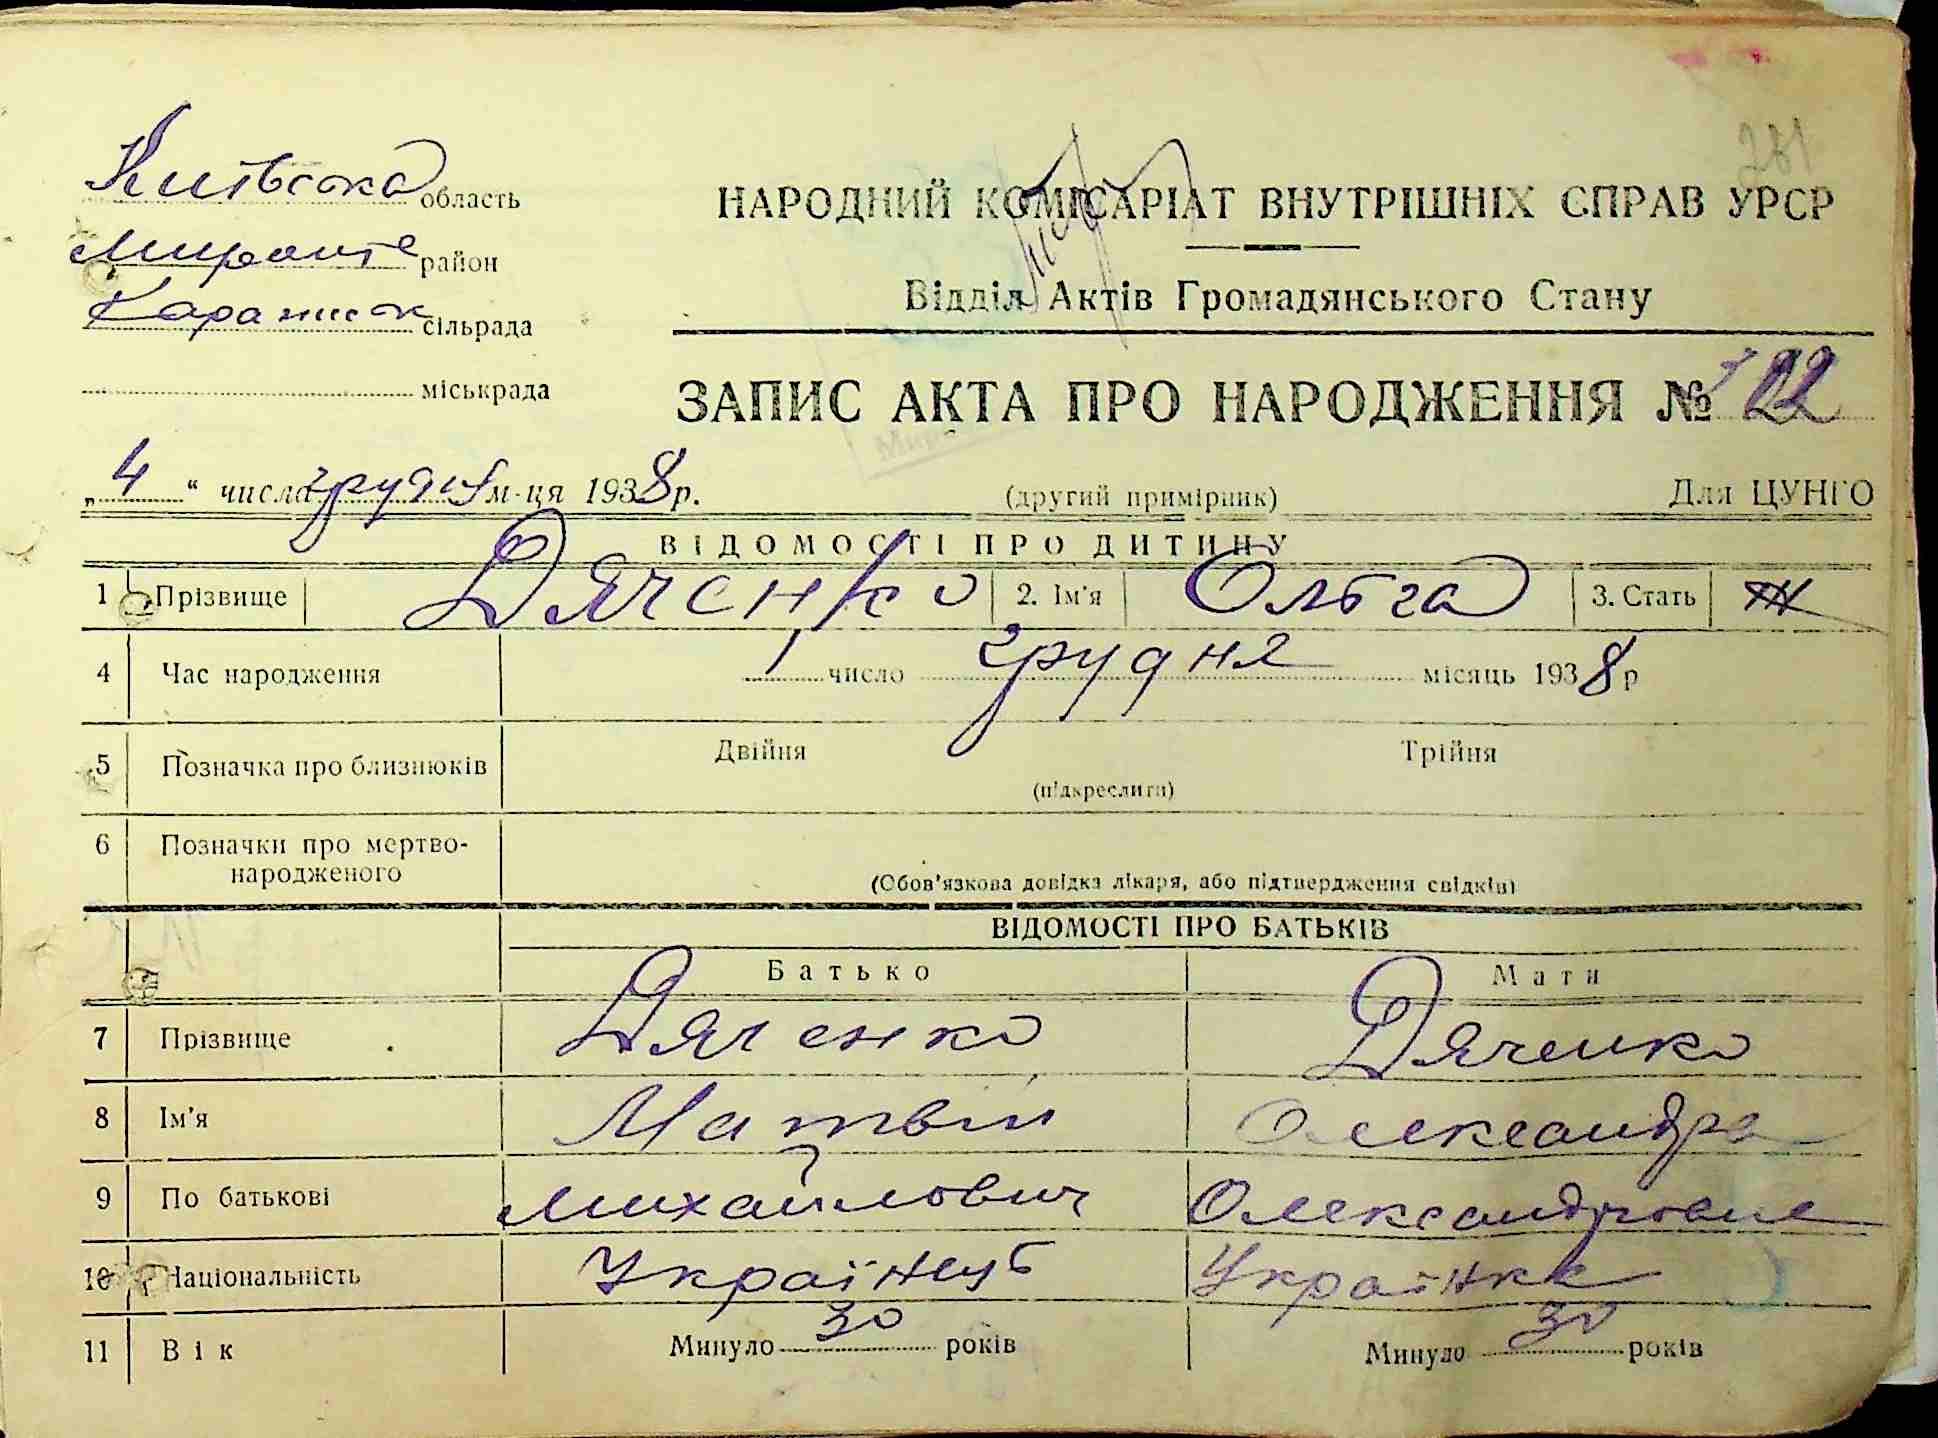 281
Київська область
НАРОДНИЙ КОМІСАРІАТ ВНУТРІШНІХ СПРАВ УРСР
район
Відділ Актів Громадянського Стану
сільрада
міськрада
ЗАПИС АКТА ПРО НАРОДЖЕННЯ № 122
„ 4 “ числа грудня м-ця 1938 р. (другий примірник) Для ЦУНГО
ВІДОМОСТІ ПРО ДИТИНУ
1 Прізвище Дяченко 2. Ім'я Ольга 3. Стать Ж
4 Час народження 1 число грудня місяць 1938 р
5 Позначка про близнюків Двійня Трійня
(підкреслити)
6 Позначки про мертво-
народженого
(Обов'язкова довідка лікаря, або підтвердження свідків)
ВІДОМОСТІ ПРО БАТЬКІВ
Батько Мати
7 Прізвище Дяченко Дяченко
8 Ім'я Матвій Олександра
9 По батькові Михайлович Олександровна
10 Національність Українець Українка
11 Вік Минуло 30 років Минуло 30 років